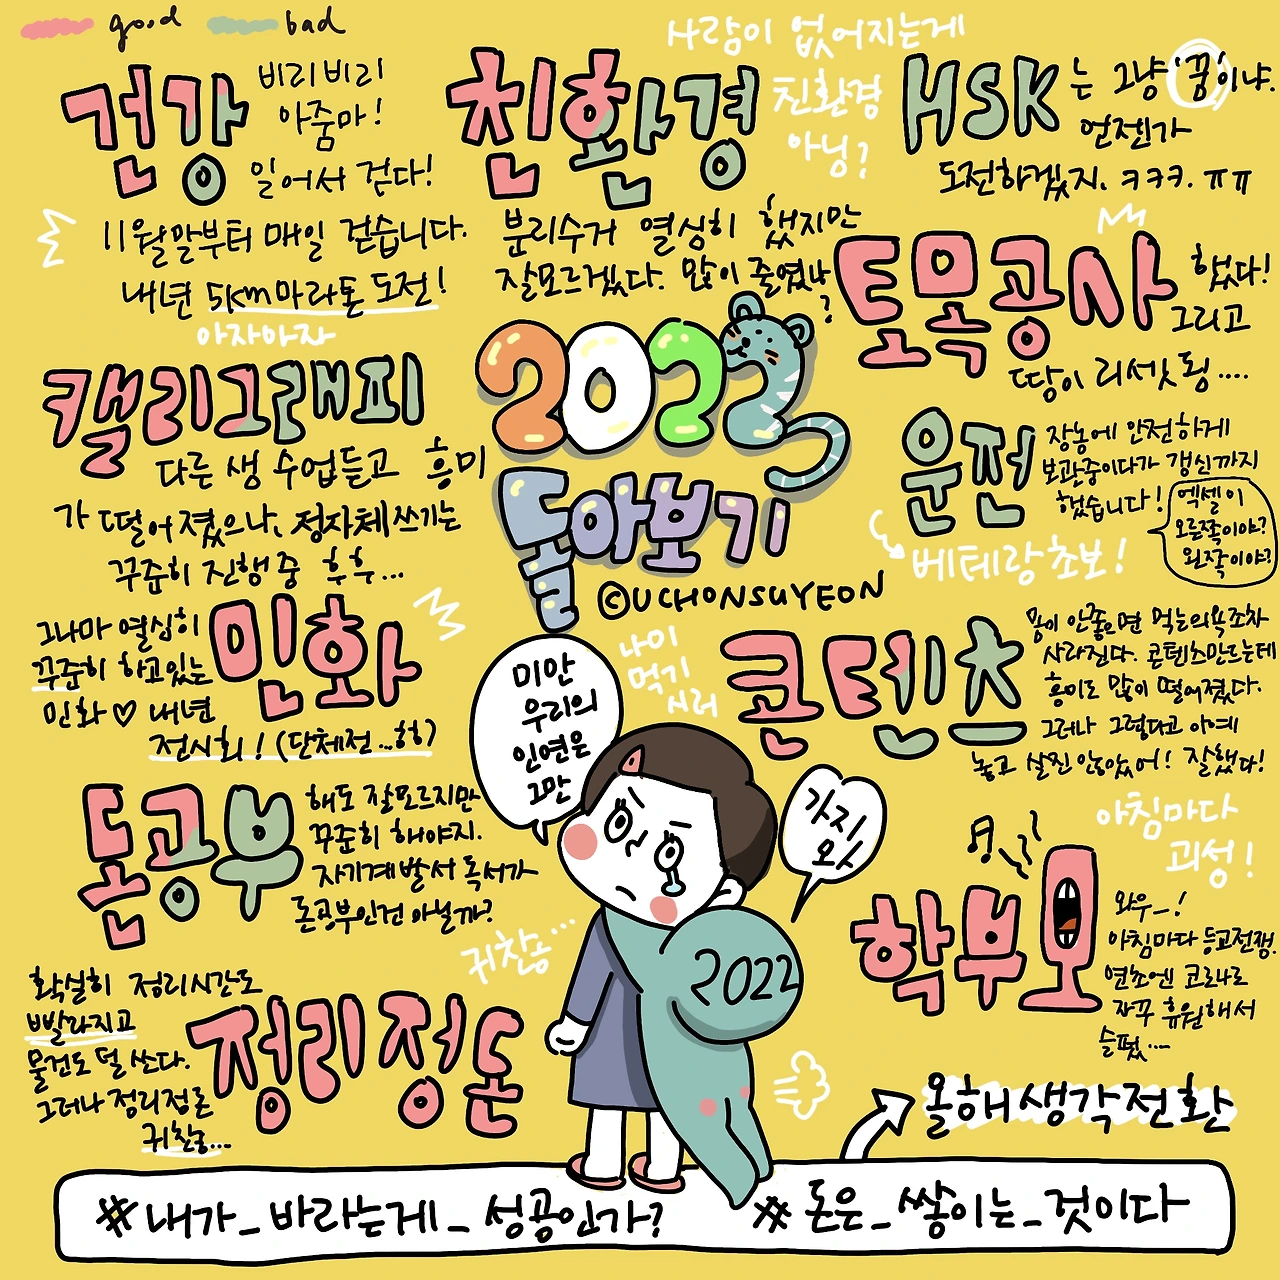 good bad
사람이 없어지는게
친환경
아닝?
건강
비리비리
아줌마!
일어서 걷다!
11월말부터 매일 걷습니다.
내년 5km마라톤 도전!
아자아자
친환경
분리수거 열심히 했지만
잘모르겠다. 많이 줄였나
?
HSK는 그냥 '꿈'이냐.
언젠가
도전하겠지. ㅋㅋㅋ. ㅠㅠ
토목공사 했다!
그리고
땅이 리셋됨....
캘리그래피
다른 생 수업듣고 흥미
가 떨어졌으나, 정자체쓰기는
꾸준히 진행중 후후...
2022
돌아보기
©UCHONSUYEON
운전
장농에 안전하게
보관중이다가 갱신까지
했습니다!
엑셀이
오른쪽이야?
왼쪽이야?
베테랑초보!
민화
그나마 열심히
꾸준히 하고있는
민화♡ 내년
전시회! (단체전...ㅎㅎ)
나이
먹기
시러
콘텐츠
몸이 안좋으면 먹는의욕조차
사라진다. 콘텐츠만드는데
흥미도 많이 떨어졌다.
그러나 그렇다고 아예
놓고 살진 않았어! 잘했다!
미안
우리의
인연은
그만
가지
와
돈공부
해도 잘모르지만
꾸준히 해야지.
자기계발서 독서가
돈공부인건 아닐까?
아침마다
괴성!
학부모
와우_!
아침마다 등교전쟁.
연초엔 코로나로
자꾸 휴원해서
슬펐...
귀찬숑...
정리정돈
확실히 정리시간도
빨라지고
물건도 덜 쓰다.
그러나 정리정돈
귀찮...
2022
올해생각전환
#내가_바라는게_성공인가? #돈은_쌓이는_것이다